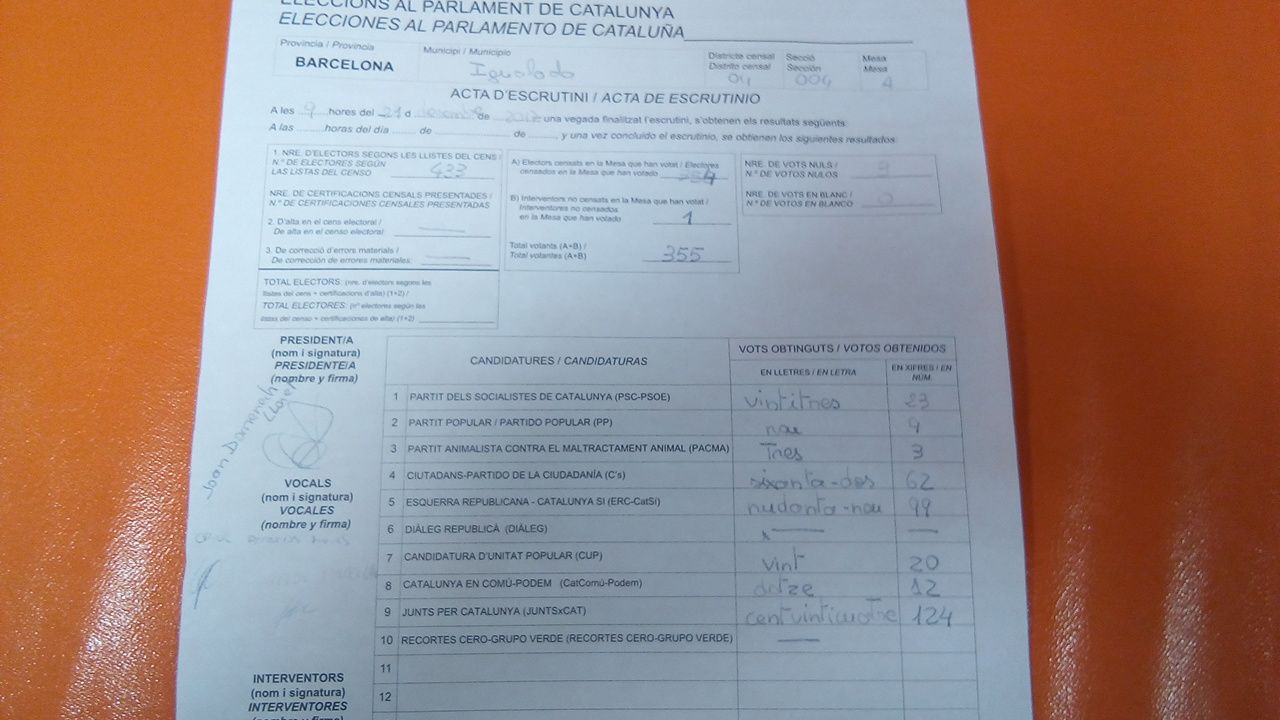 ELECCIONS AL PARLAMENT DE CATALUNYA
ELECCIONES AL PARLAMENTO DE CATALUÑA
Província / Provincia
BARCELONA
Municipi / Municipio
Igualada
Districte censal
Distrito censal
04
Secció
Sección
004
Mesa
Mesa
A
ACTA D'ESCRUTINI / ACTA DE ESCRUTINIO
A les 9 hores del 21 d desembre de 2017 una vegada finalitzat l'escrutini, s'obtenen els resultats següents:
A las horas del día de de , y una vez concluido el escrutinio, se obtienen los siguientes resultados:
1. NRE. D'ELECTORS SEGONS LES LLISTES DEL CENS /
N.º DE ELECTORES SEGÚN
LAS LISTAS DEL CENSO 433
NRE. DE CERTIFICACIONS CENSALS PRESENTADES /
N.º DE CERTIFICACIONES CENSALES PRESENTADAS
2. D'alta en el cens electoral /
De alta en el censo electoral: —
3. De correcció d'errors materials /
De corrección de errores materiales: —
TOTAL ELECTORS: (nre. d'electors segons les
llistes del cens + certificacions d'alta) (1+2) /
TOTAL ELECTORES: (nº electores según las
listas del censo + certificaciones de alta) (1+2)
A) Electors censats en la Mesa que han votat / Electores
censados en la Mesa que han votado 354
B) Interventors no censats en la Mesa que han votat /
Interventores no censados
en la Mesa que han votado 1
Total votants (A+B) /
Total votantes (A+B) 355
NRE. DE VOTS NULS /
N.º DE VOTOS NULOS
NRE. DE VOTS EN BLANC /
N.º DE VOTOS EN BLANCO 0
PRESIDENT/A
(nom i signatura)
PRESIDENTE/A
(nombre y firma)
Joan Domenech
VOCALS
(nom i signatura)
VOCALES
(nombre y firma)
INTERVENTORS
(nom i signatura)
INTERVENTORES
(nombre y firma)
CANDIDATURES / CANDIDATURAS
VOTS OBTINGUTS / VOTOS OBTENIDOS
EN LLETRES / EN LETRA
EN XIFRES / EN NÚM.
1 PARTIT DELS SOCIALISTES DE CATALUNYA (PSC-PSOE) vintitres 23
2 PARTIT POPULAR / PARTIDO POPULAR (PP) nou 9
3 PARTIT ANIMALISTA CONTRA EL MALTRACTAMENT ANIMAL (PACMA) Tres 3
4 CIUTADANS-PARTIDO DE LA CIUDADANÍA (C's) sixanta-dos 62
5 ESQUERRA REPUBLICANA - CATALUNYA SÍ (ERC-CatSí) nudonta-nou 99
6 DIÀLEG REPUBLICÀ (DIÀLEG) — —
7 CANDIDATURA D'UNITAT POPULAR (CUP) vint 20
8 CATALUNYA EN COMÚ-PODEM (CatComú-Podem) dotze 12
9 JUNTS PER CATALUNYA (JUNTSxCAT) centvinticuatre 124
10 RECORTES CERO-GRUPO VERDE (RECORTES CERO-GRUPO VERDE) —
11
12